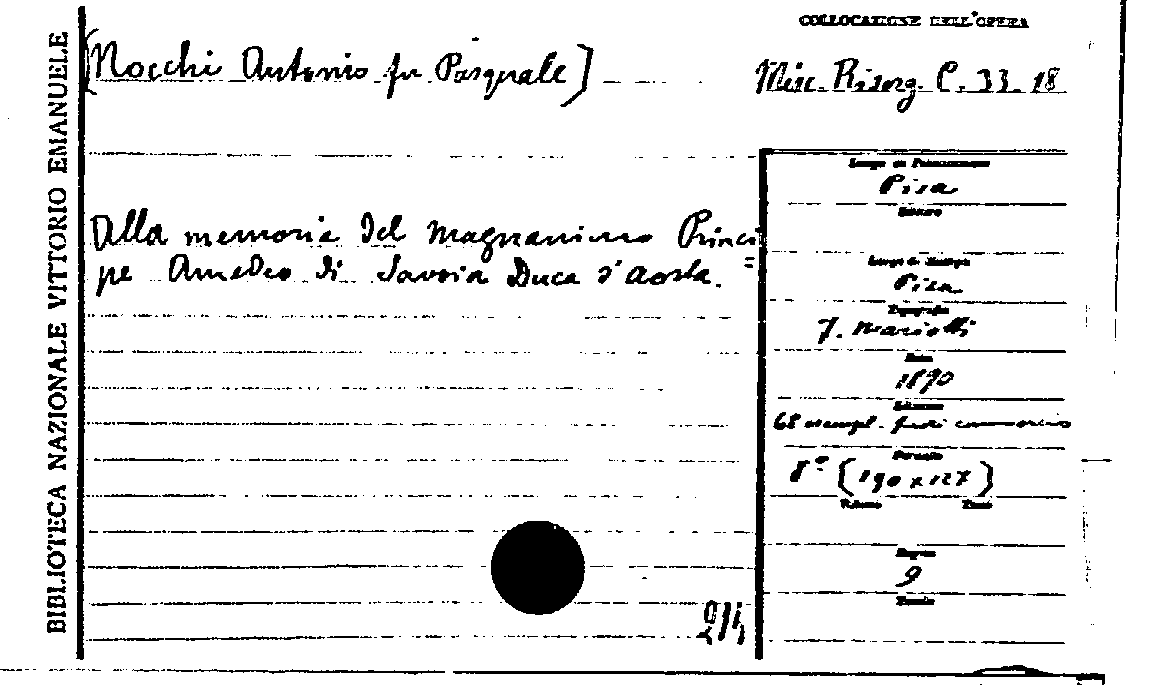 BIBLIOTECA NAZIONALE VITTORIO EMANUELE
COLLOCAZIONE DELL'OPERA
[Nocchi Antonio fu Pasquale]
Misc. Risorg. C. 33. 18
Luogo di Pubblicazione
Pisa
Editore
Alla memoria del magnanimo Princi=
pe Amedeo di Savoia Duca d'Aosta.
Luogo di Stampa
Pisa
Tipografia
F. Mariotti
Data
1890
Edizione
68 esempl. fuori commercio
Formato
8° (190x127)
Volume Tomo
Pagine
9
Tavole